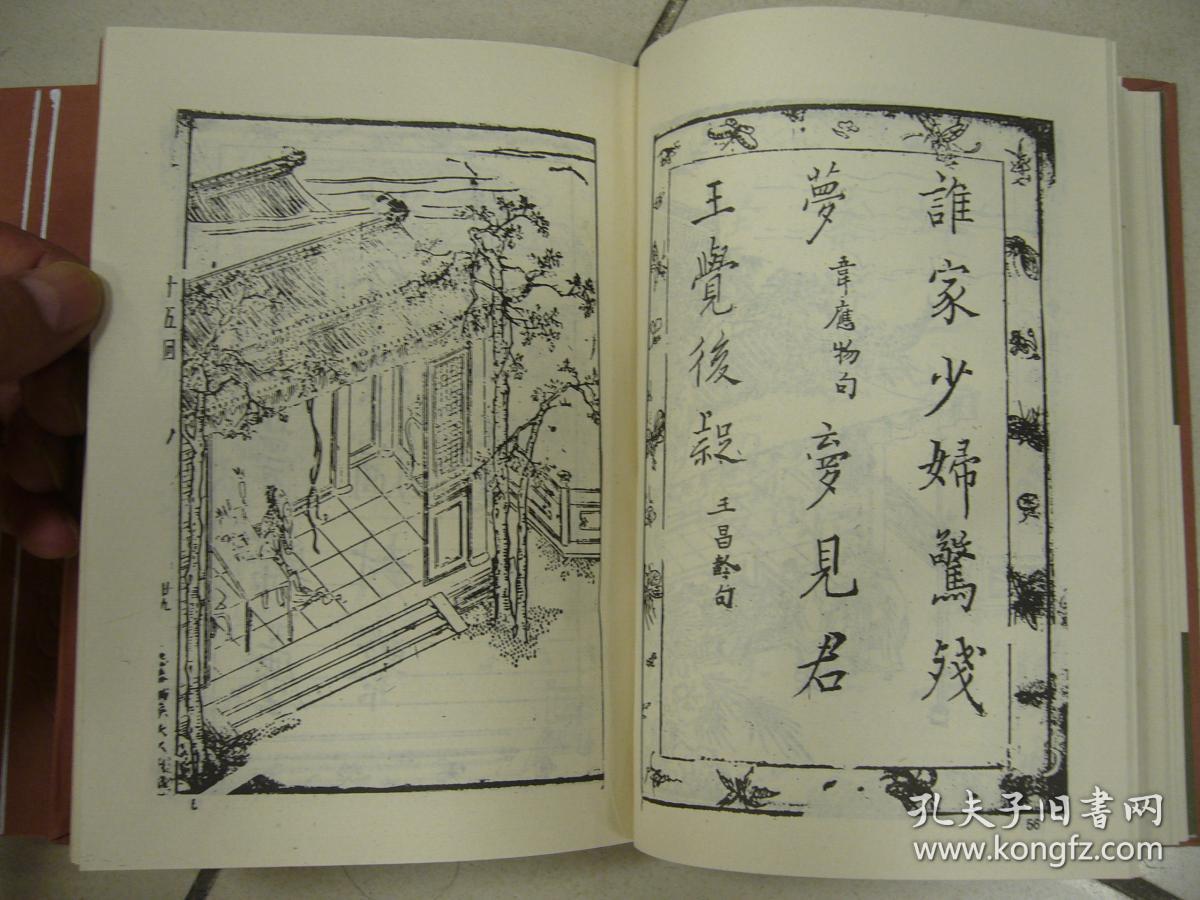 誰家少婦驚殘
夢 韋應物句 夢見君
王覺後疑 王昌齡句
56
十五回
廿九
孔夫子旧书网
www.kongfz.com